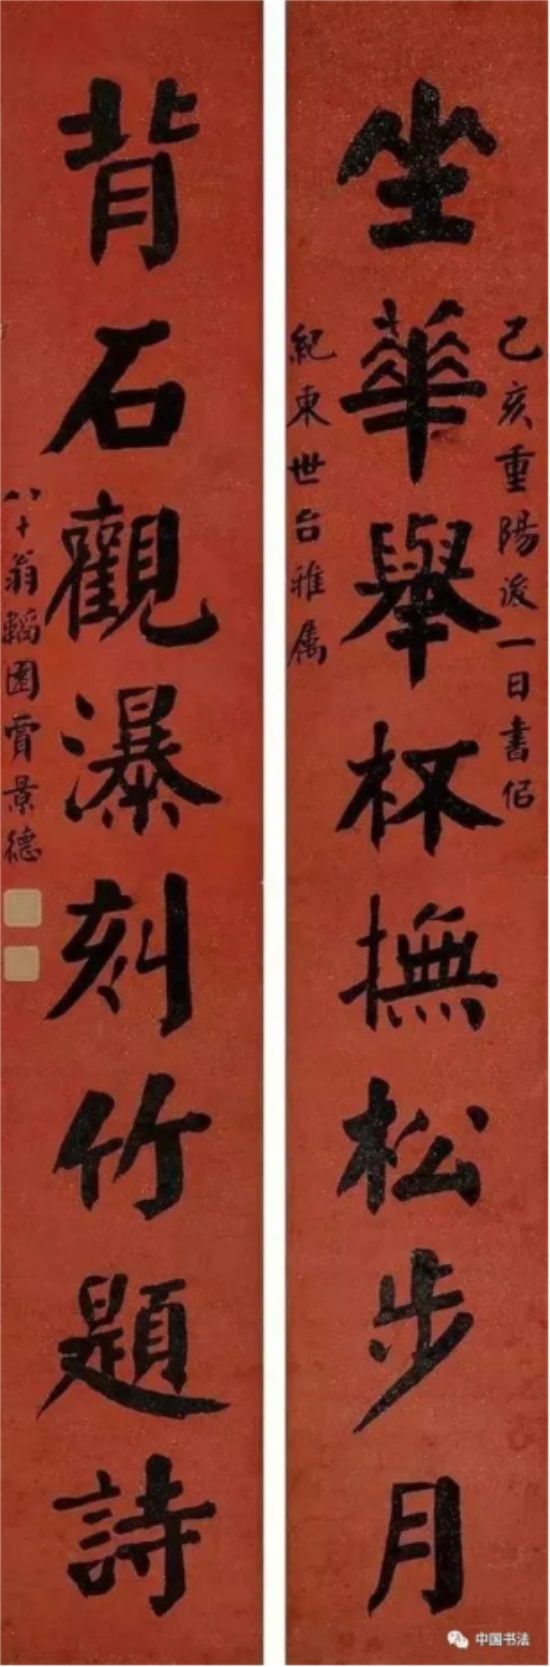 坐華舉杯撫松步月
己亥重陽後一日書佀
紀東世台雅属
背石觀瀑刻竹題詩
八十翁韜園賈景德
中国书法